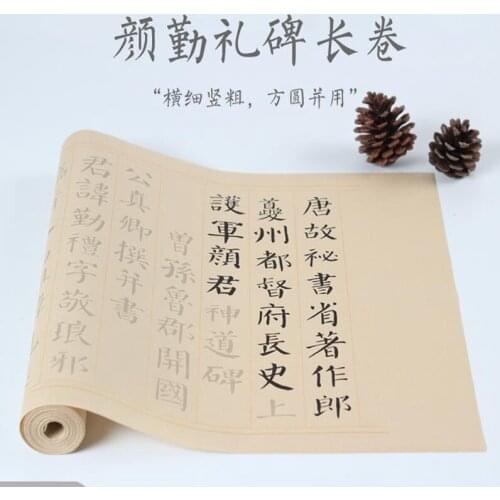 颜勤礼碑长卷
“横细竖粗，方圆并用”
唐故祕書省著作郎
夔州都督府長史上
護軍顔君神道碑
曾孫魯郡開國
公真卿撰并書
君諱勤禮字敬琅邪